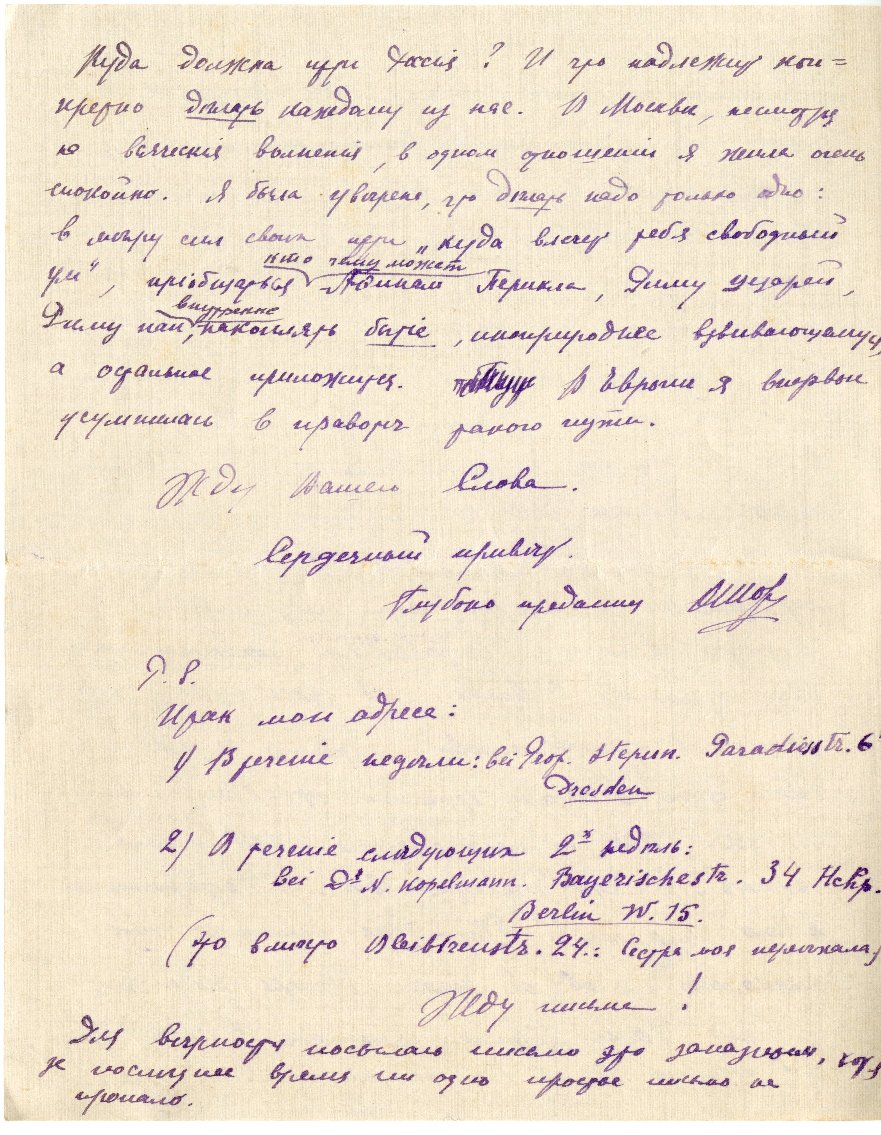 Куда должна идти Россія? И что надлежит кон=
кретно дѣлать каждому из нас. В Москвѣ, несмотря
на всяческія волненія, в одном отношеніи я жила очень
спокойно. Я была увѣрена, что дѣлать надо только одно:
в мѣру сил своих идти „куда влечет тебя свободный
ум“, пріобщаться кто чему может Аѳинам Перикла, Риму цезарей,
Риму пап, внутренне накоплять бытіе, иноприродное взвивающемуся,
а остальное приложится. В Европѣ я впервые
усумнилась в правотѣ такого пути.
Жду Вашего Слова.
Сердечный привѣт.
Глубоко преданная ОШор
P.S.
Итак мои адреса:
1) В теченіе недѣли: bei Prof. Stepun. Paradiesstr. 6
Dresden
2) В теченіе слѣдующих 2х недѣль:
bei Dr N. Kopelmann. Bayerischestr. 34 Hchp.
Berlin W. 15.
(это вмѣсто Bleibtreustr. 24.: Сестра моя переѣхала)
Жду письма!
Для вѣрности посылаю письмо это заказным, хотя
за послѣднее время ни одно простое письмо не
пропало.